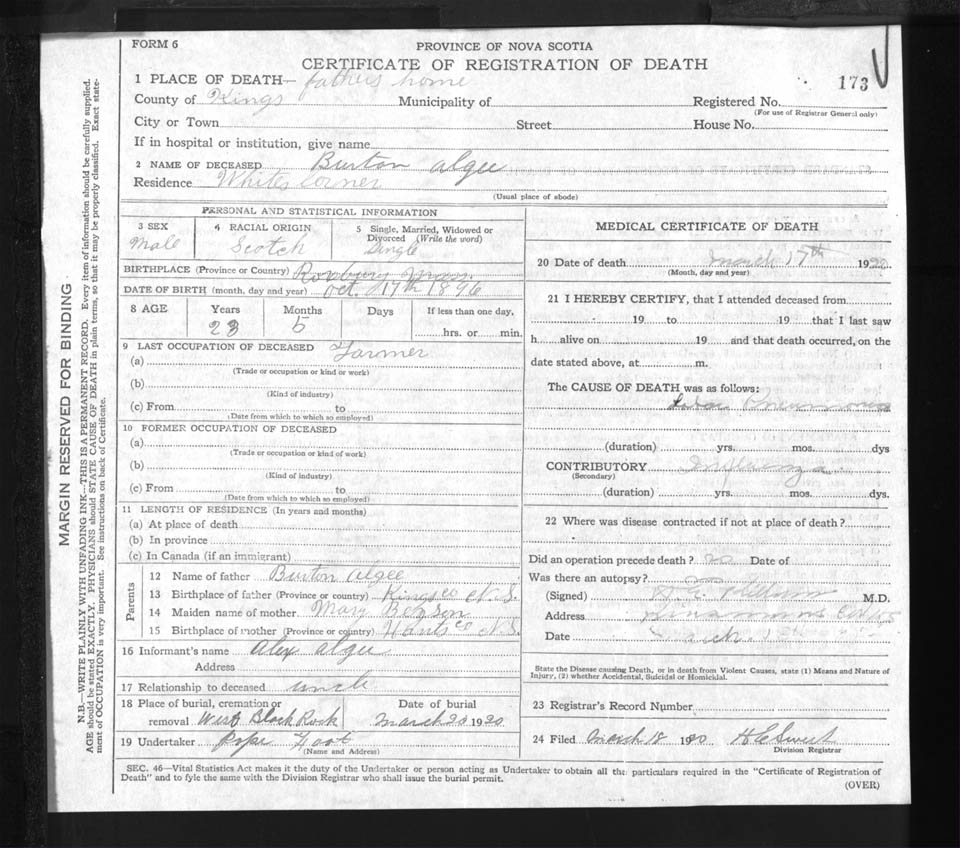 FORM 6
PROVINCE OF NOVA SCOTIA
CERTIFICATE OF REGISTRATION OF DEATH
173
1 PLACE OF DEATH— fathers home
County of Kings Municipality of Registered No.
(For use of Registrar General only)
City or Town Street House No.
If in hospital or institution, give name
2 NAME OF DECEASED Burton algee
Residence Whites corner
(Usual place of abode)
PERSONAL AND STATISTICAL INFORMATION
3 SEX Male
4 RACIAL ORIGIN Scotch
5 Single, Married, Widowed or Divorced (Write the word) Single
BIRTHPLACE (Province or Country) Roxbury Mass.
DATE OF BIRTH (month, day and year) oct. 17th 1896
8 AGE Years Months Days If less than one day,
23 5 hrs. or min.
9 LAST OCCUPATION OF DECEASED Farmer
(a)
(Trade or occupation or kind or work)
(b)
(Kind of industry)
(c) From to
(Date from which to which so employed)
10 FORMER OCCUPATION OF DECEASED
(a)
(Trade or occupation or kind of work)
(b)
(Kind of industry)
(c) From to
(Date from which to which so employed)
11 LENGTH OF RESIDENCE (In years and months)
(a) At place of death
(b) In province
(c) In Canada (if an immigrant)
Parents
12 Name of father Burton algee
13 Birthplace of father (Province or country) Kings co N.S.
14 Maiden name of mother Mary Benson
15 Birthplace of mother (Province or country) Hants co N.S.
16 Informant's name alex algee
Address
17 Relationship to deceased uncle
18 Place of burial, cremation or removal West Black Rock
Date of burial march 20 1920
19 Undertaker Pope Foot
(Name and Address)
MEDICAL CERTIFICATE OF DEATH
20 Date of death march 17th 1920
(Month, day and year)
21 I HEREBY CERTIFY, that I attended deceased from
19 to 19 that I last saw
h alive on 19 and that death occurred, on the
date stated above, at m.
The CAUSE OF DEATH was as follows:
Lobar Pneumonia
(duration) yrs. mos. dys
CONTRIBUTORY Influenza
(Secondary)
(duration) yrs. mos. dys.
22 Where was disease contracted if not at place of death?
Did an operation precede death? no Date of
Was there an autopsy?
(Signed) M.D.
Address
Date March
State the Disease causing Death, or in death from Violent Causes, state (1) Means and Nature of
Injury, (2) whether Accidental, Suicidal or Homicidal.
23 Registrar's Record Number
24 Filed March 18 1920 H C Sweet
Division Registrar
SEC. 46—Vital Statistics Act makes it the duty of the Undertaker or person acting as Undertaker to obtain all the particulars required in the "Certificate of Registration of
Death" and to fyle the same with the Division Registrar who shall issue the burial permit.
(OVER)
MARGIN RESERVED FOR BINDING
N.B.—WRITE PLAINLY WITH UNFADING INK—THIS IS A PERMANENT RECORD. Every item of information should be carefully supplied.
AGE should be stated EXACTLY. PHYSICIANS should STATE CAUSE OF DEATH in plain terms, so that it may be properly classified. Exact state-
ment of OCCUPATION is very important. See instructions on back of Certificate.